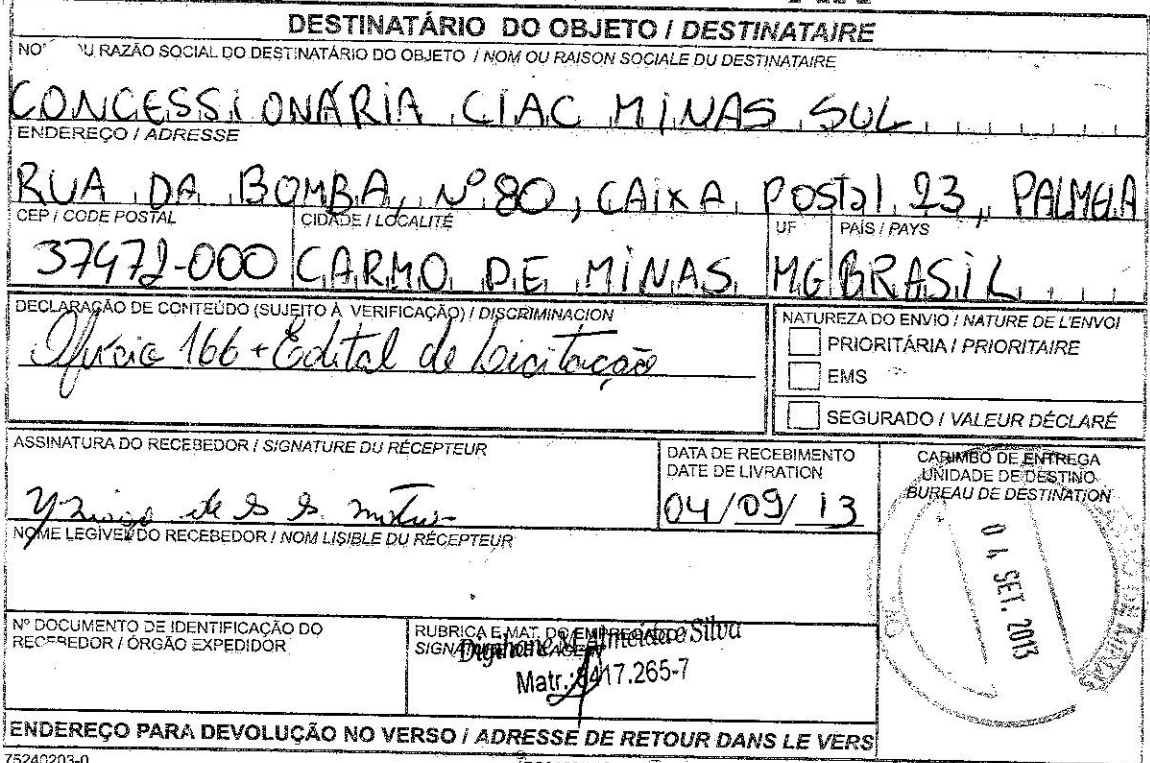 DESTINATÁRIO DO OBJETO / DESTINATAIRE
OU RAZÃO SOCIAL DO DESTINATÁRIO DO OBJETO / NOM OU RAISON SOCIALE DU DESTINATAIRE
CONCESSIONÁRIA CIAC MINAS SUL
ENDEREÇO / ADRESSE
RUA DA BOMBA, Nº 80, CAIXA POSTAL 23, PALMELA
CEP / CODE POSTAL CIDADE / LOCALITÉ UF PAÍS / PAYS
37472-000 CARMO DE MINAS MG BRASIL
DECLARAÇÃO DE CONTEÚDO (SUJEITO À VERIFICAÇÃO) / DISCRIMINACION
Ofício 166 + Edital de Licitação
NATUREZA DO ENVIO / NATURE DE L'ENVOI
PRIORITÁRIA / PRIORITAIRE
EMS
SEGURADO / VALEUR DÉCLARÉ
ASSINATURA DO RECEBEDOR / SIGNATURE DU RÉCEPTEUR
de S S
DATA DE RECEBIMENTO
DATE DE LIVRATION
04/09/13
CARIMBO DE ENTREGA
UNIDADE DE DESTINO
BUREAU DE DESTINATION
04 SET. 2013
MINAS
NOME LEGÍVEL DO RECEBEDOR / NOM LISIBLE DU RÉCEPTEUR
Nº DOCUMENTO DE IDENTIFICAÇÃO DO
RECEBEDOR / ÓRGÃO EXPEDIDOR
RUBRICA E MAT. DO EMPREGADO
Almeida e Silva
Matr.: 8417.265-7
ENDEREÇO PARA DEVOLUÇÃO NO VERSO / ADRESSE DE RETOUR DANS LE VERS
75240203-0